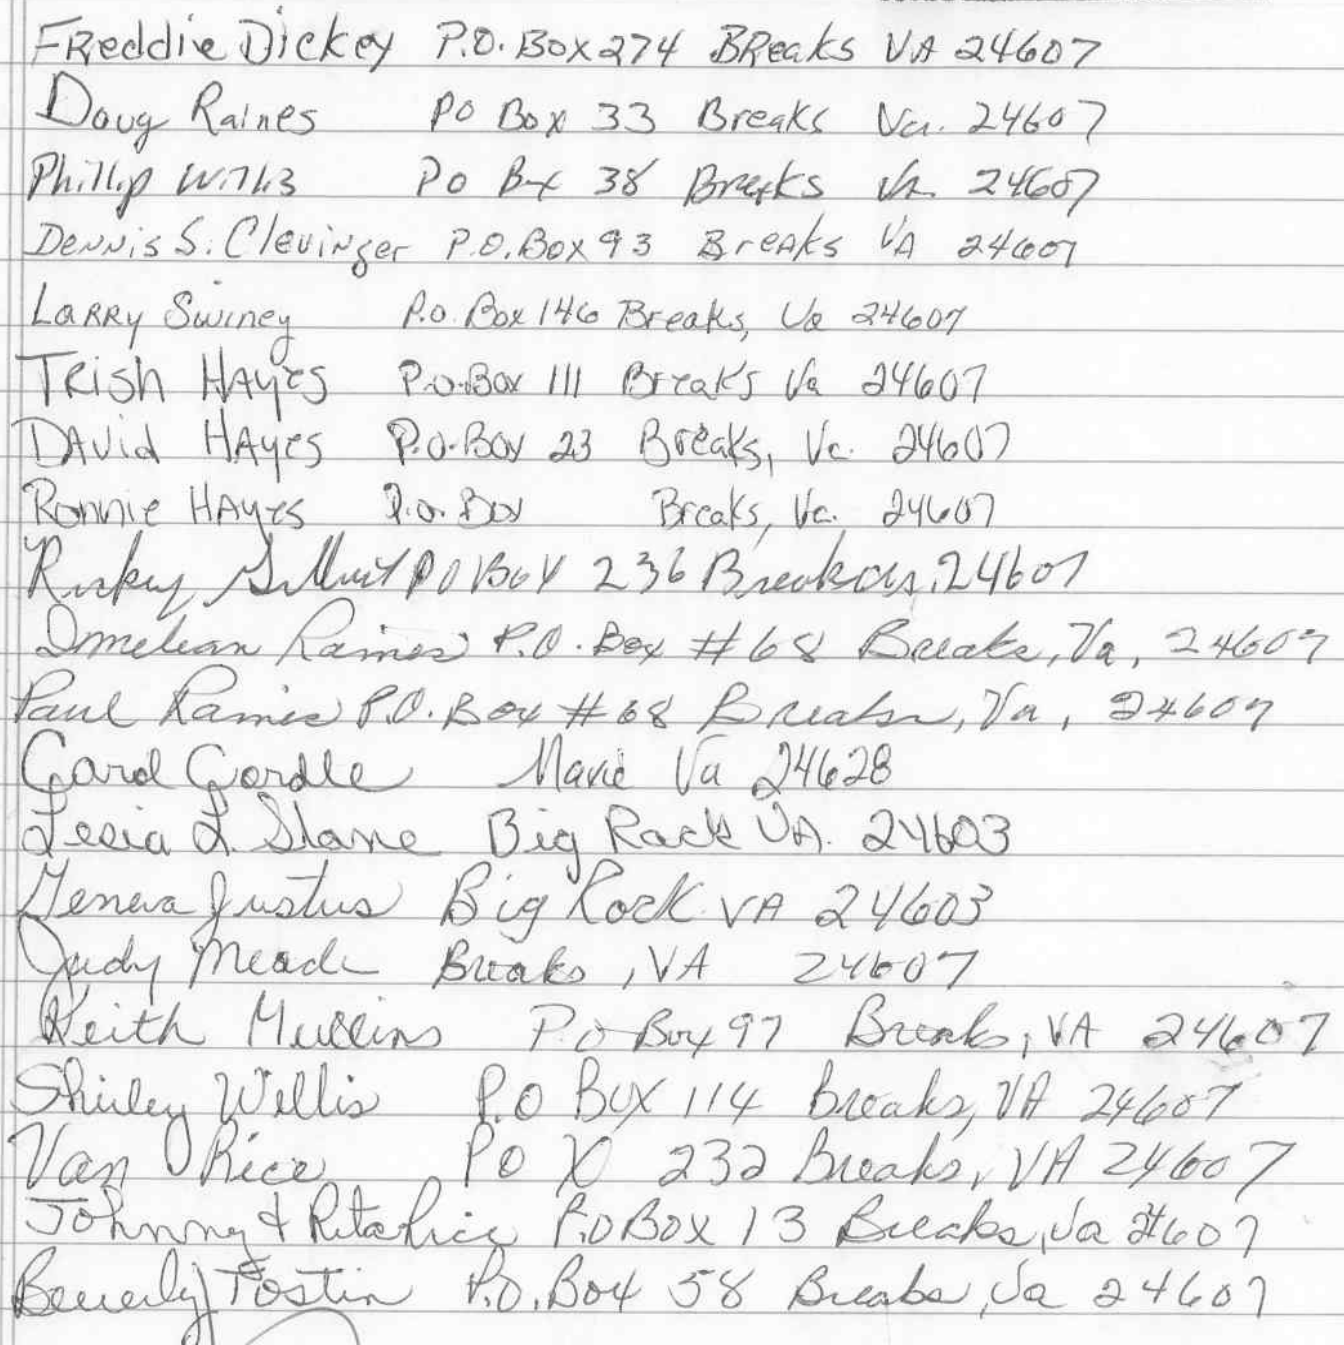 FReddie Dickey P.O. Box 274 BReaks VA 24607
Doug Raines PO Box 33 Breaks Va. 24607
Phillip Po Box 38 Breaks Va. 24607
DeNNis S. Clevinger P.O. Box 93 BreAks VA 24607
LaRRy Swiney P.o. Box 146 Breaks, Va 24607
TRish HAyes P.o. Box 111 Breaks Va 24607
DAvid HAyes P.o. Box 23 Breaks, Va. 24607
Ronnie HAyes P.o. Box Breaks, Va. 24607
Ricky PO Box 236 Breaks 24607
Raines P.O. Box #68 Breaks, Va, 24607
Paul Raines P.O. Box #68 Breaks, Va, 24607
Mavie Va 24628
Lesia L Big Rock VA. 24603
Geneva Justus Big Rock VA 24603
Judy Meade Breaks, VA 24607
Keith Mullins P.o Box 97 Breaks, VA 24607
Shirley Willis P.O Box 114 Breaks, VA 24607
Van Rice PO X 232 Breaks, VA 24607
Johnny & Rita Rice P.O Box 13 Breaks, Va 24607
Beverly Postin P.O. Box 58 Breaks, Va 24607